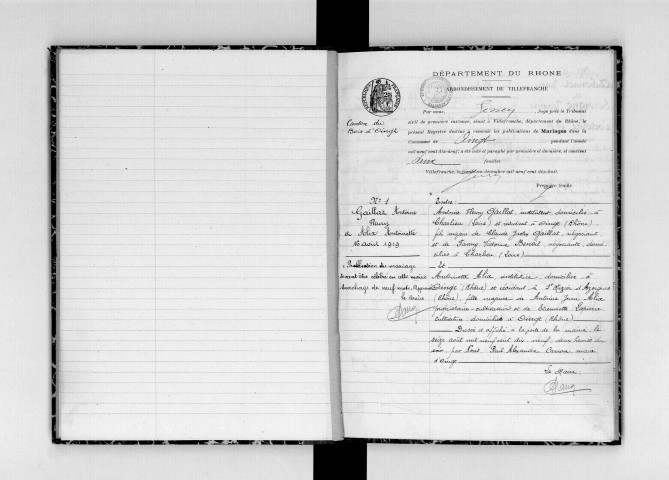 DÉPARTEMENT DU RHONE
ARRONDISSEMENT DE VILLEFRANCHE
Canton du
Bois d'Oingt
Par nous, juge près le Tribunal
civil de première instance, séant à Villefranche, département du Rhône, le
présent Registre destiné à recevoir les publications de Mariages dans la
Commune de Oingt pendant l'année
mil neuf cent dix-neuf, a été coté et paraphé par première et dernière, et contient
deux feuillets
Villefranche, le décembre mil neuf cent dix-huit.
Première feuille
N° 1
Gaillat Antoine
Fleury
& Alix Antoinette
16 août 1919
Publication du mariage
devant être célébré en cette mairie
surcharge de neuf mots. Approuvé
le Maire
Entre
Antoine Fleury Gaillat, instituteur, domicilié à
Charlieu (Loire) et résidant à Oingt (Rhône)
fils majeur de Claude Gaillat, négociant
et de Fanny Benoit, négociante, domi-
ciliés à Charlieu (Loire)
Et
Antoinette Alix, institutrice, domiciliée à
Oingt (Rhône) et résidant à St d'Azergues
(Rhône), fille majeure de Antoine Alix
propriétaire-cultivateur et de Lapierre
cultivatrice domiciliés à Oingt (Rhône)
Dressé et affiché à la porte de la mairie, le
seize août mil neuf cent dix-neuf, deux heures du
soir, par Nous, Paul Alexandre maire
d'Oingt
Le Maire